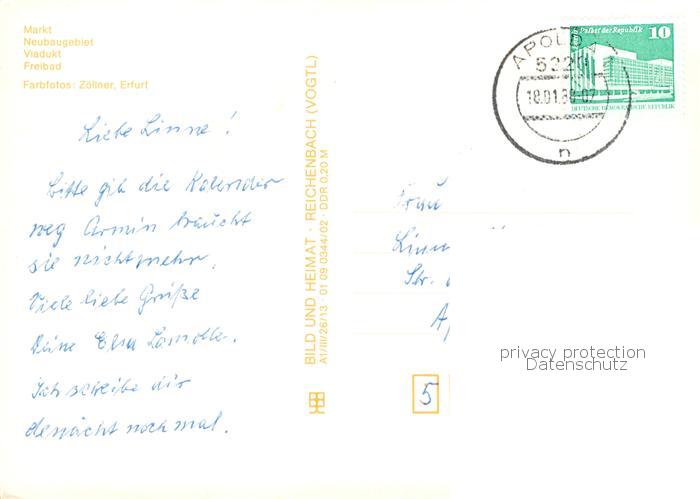 Markt
Neubaugebiet
Viadukt
Freibad
Farbfotos: Zöllner, Erfurt
Liebe Linne!
Bitte gib die Kalender
weg Armin braucht
sie nicht mehr.
Viele liebe Grüße
Deine Elsa
Ich screibe dir
demnächt noch mal.
BILD UND HEIMAT · REICHENBACH (VOGTL)
A1/III/26/13 · 01 09 0344/02 · DDR 0,20 M
Palast der Republik 10
DEUTSCHE DEMOKRATISCHE REPUBLIK
APOLDA
18.01.
n
Frau
Str.
5
privacy protection
Datenschutz